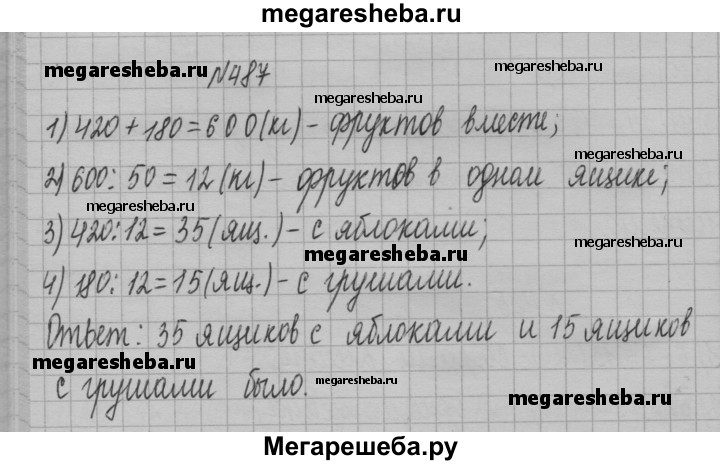 megaresheba.ru
megaresheba.ru №487
megaresheba.ru
1) 420 + 180 = 600 (кг) - фруктов вместе;
megaresheba.ru
2) 600 : 50 = 12 (кг) - фруктов в одном ящике;
megaresheba.ru
3) 420 : 12 = 35 (ящ.) - с яблоками;
megaresheba.ru
megaresheba.ru
4) 180 : 12 = 15 (ящ.) - с грушами.
Ответ: 35 ящиков с яблоками и 15 ящиков
megaresheba.ru
с грушами было.
megaresheba.ru
megaresheba.ru
Мегарешеба.ру